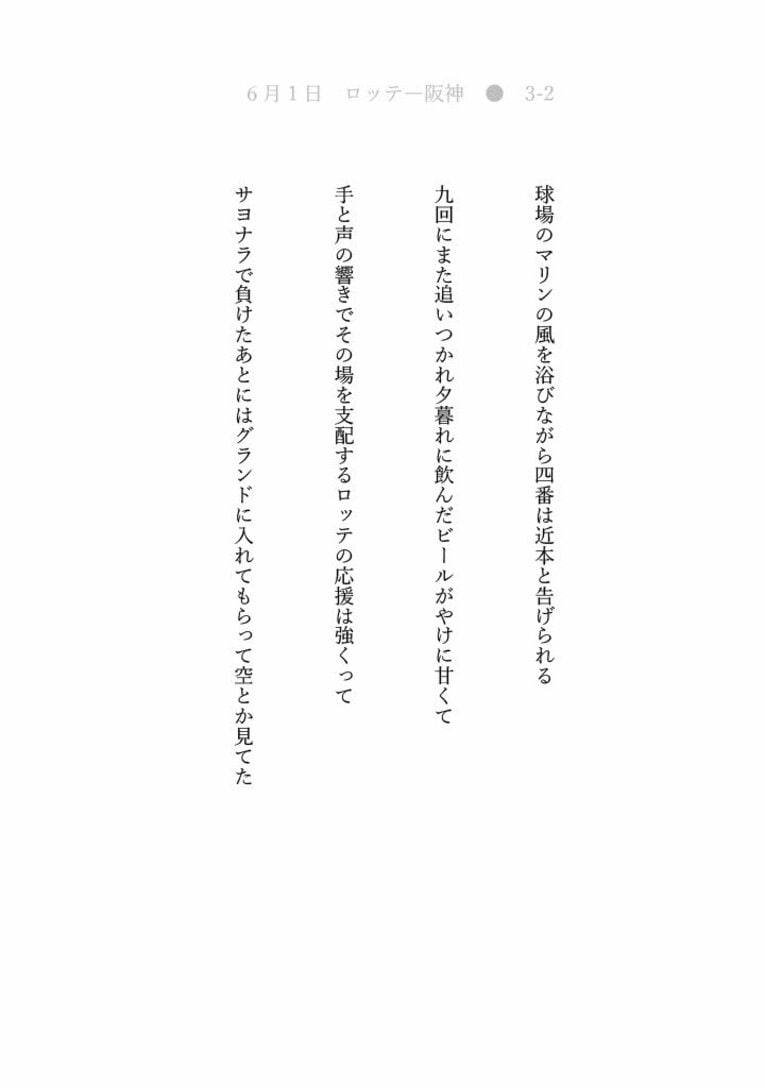 6月1日　ロッテ―阪神　●　3-2
球場のマリンの風を浴びながら四番は近本と告げられる
九回にまた追いつかれ夕暮れに飲んだビールがやけに甘くて
手と声の響きでその場を支配するロッテの応援は強くって
サヨナラで負けたあとにはグランドに入れてもらって空とか見てた